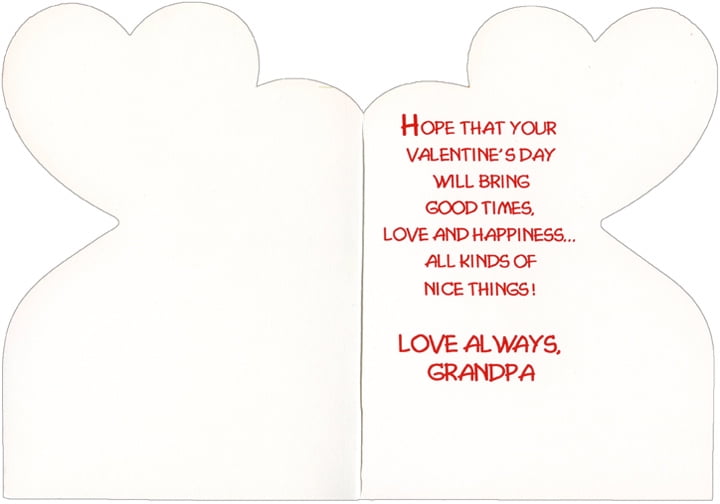 HOPE THAT YOUR
VALENTINE'S DAY
WILL BRING
GOOD TIMES,
LOVE AND HAPPINESS...
ALL KINDS OF
NICE THINGS!
LOVE ALWAYS,
GRANDPA